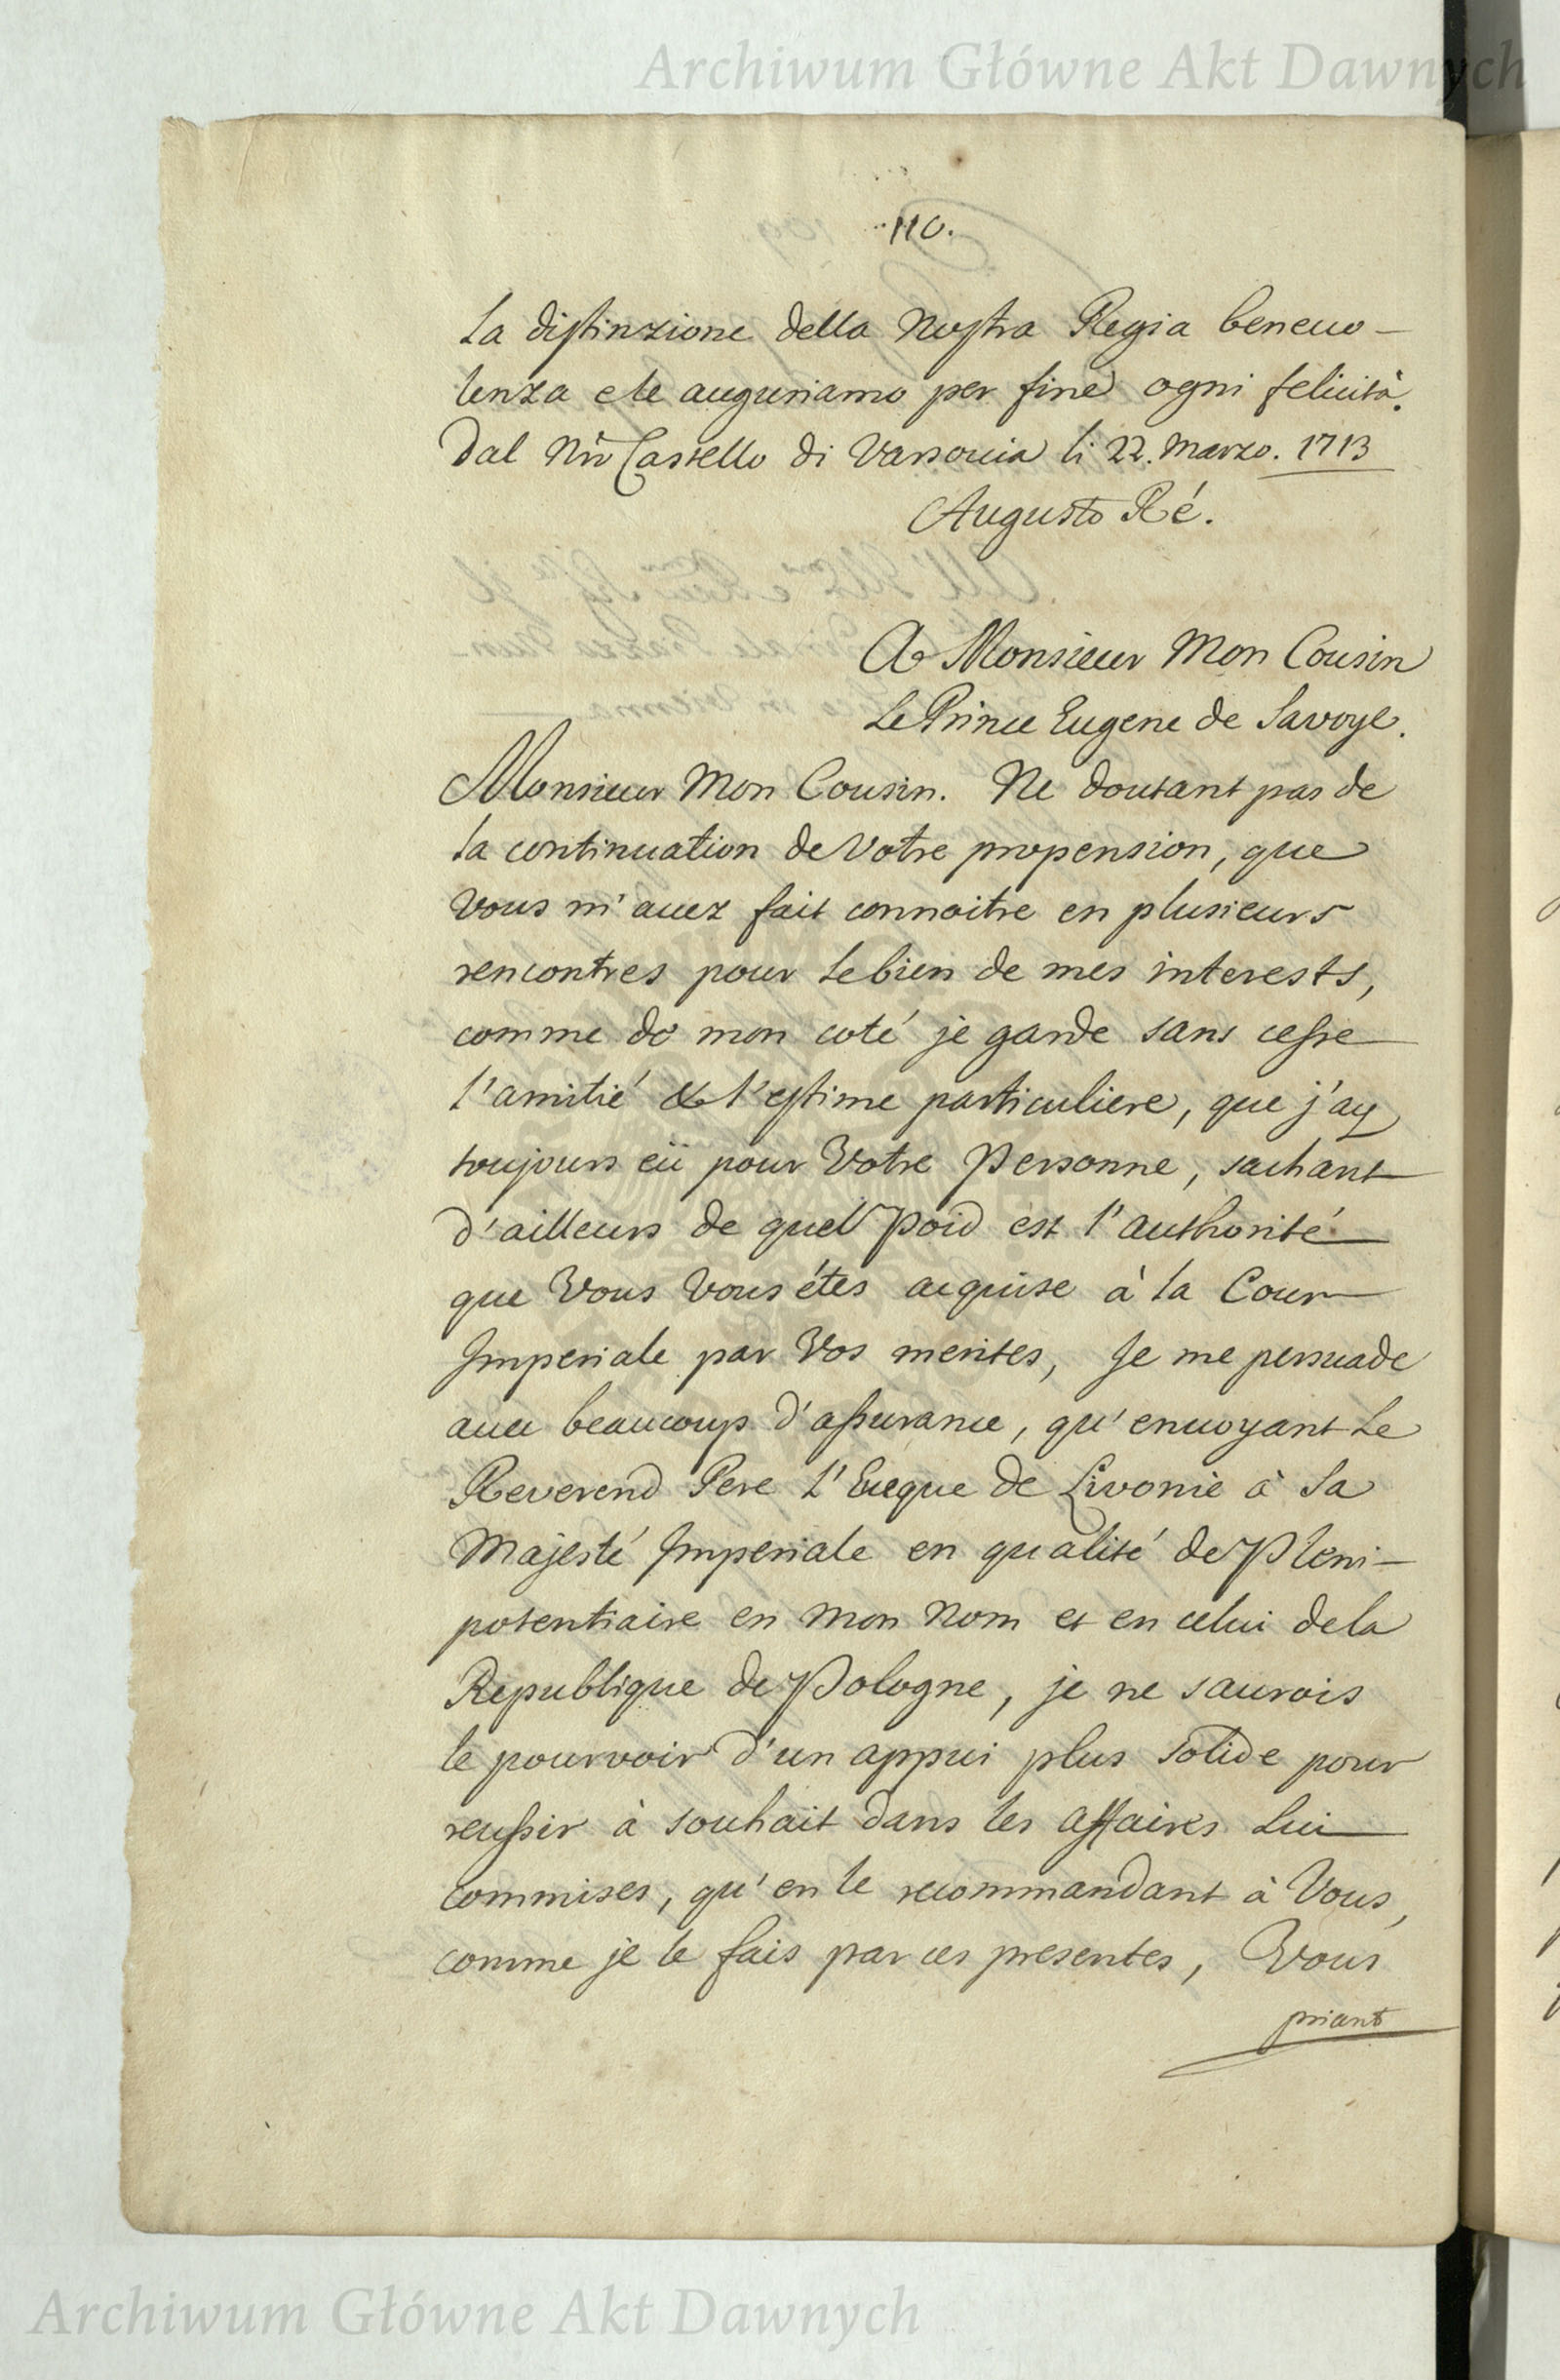 Archiwum Główne Akt Dawnych
110.
la distinzione della Nostra Regia beneuo-
lenza e le auguriamo per fine ogni felicità.
Dal Nrõ Castello di Varsouia li 22. Marzo. 1713
Augusto Ré.
A Monsieur Mon Cousin
Le Prince Eugene de Savoye.
Monsieur Mon Cousin. Ne doutant pas de
la continuation de Votre propension, que
Vous m'auez fait connoitre en plusieurs
rencontres pour le bien de mes interests,
comme de mon coté je garde sans cesse
l'amitié & l'estime particuliere, que j'ay
toujours eü pour Votre Personne, sachant
d'ailleurs de quel poid est l'authorité
que Vous Vous étes acquise à la Cour
Imperiale par Vos merites, Je me persuade
auec beaucoup d'assurance, qu'enuoyant Le
Reverend Pere L'Eueque de Livonie à Sa
Majesté Imperiale en qualité de Pleni-
potentiaire en Mon Nom et en celui de la
Republique de Pologne, je ne saurois
le pourvoir d'un appui plus solide pour
reussir à souhait dans les affaires Lui
commises, qu'en le recommandant à Vous,
comme je le fais par ces presentes, Vous
priant
Archiwum Główne Akt Dawnych